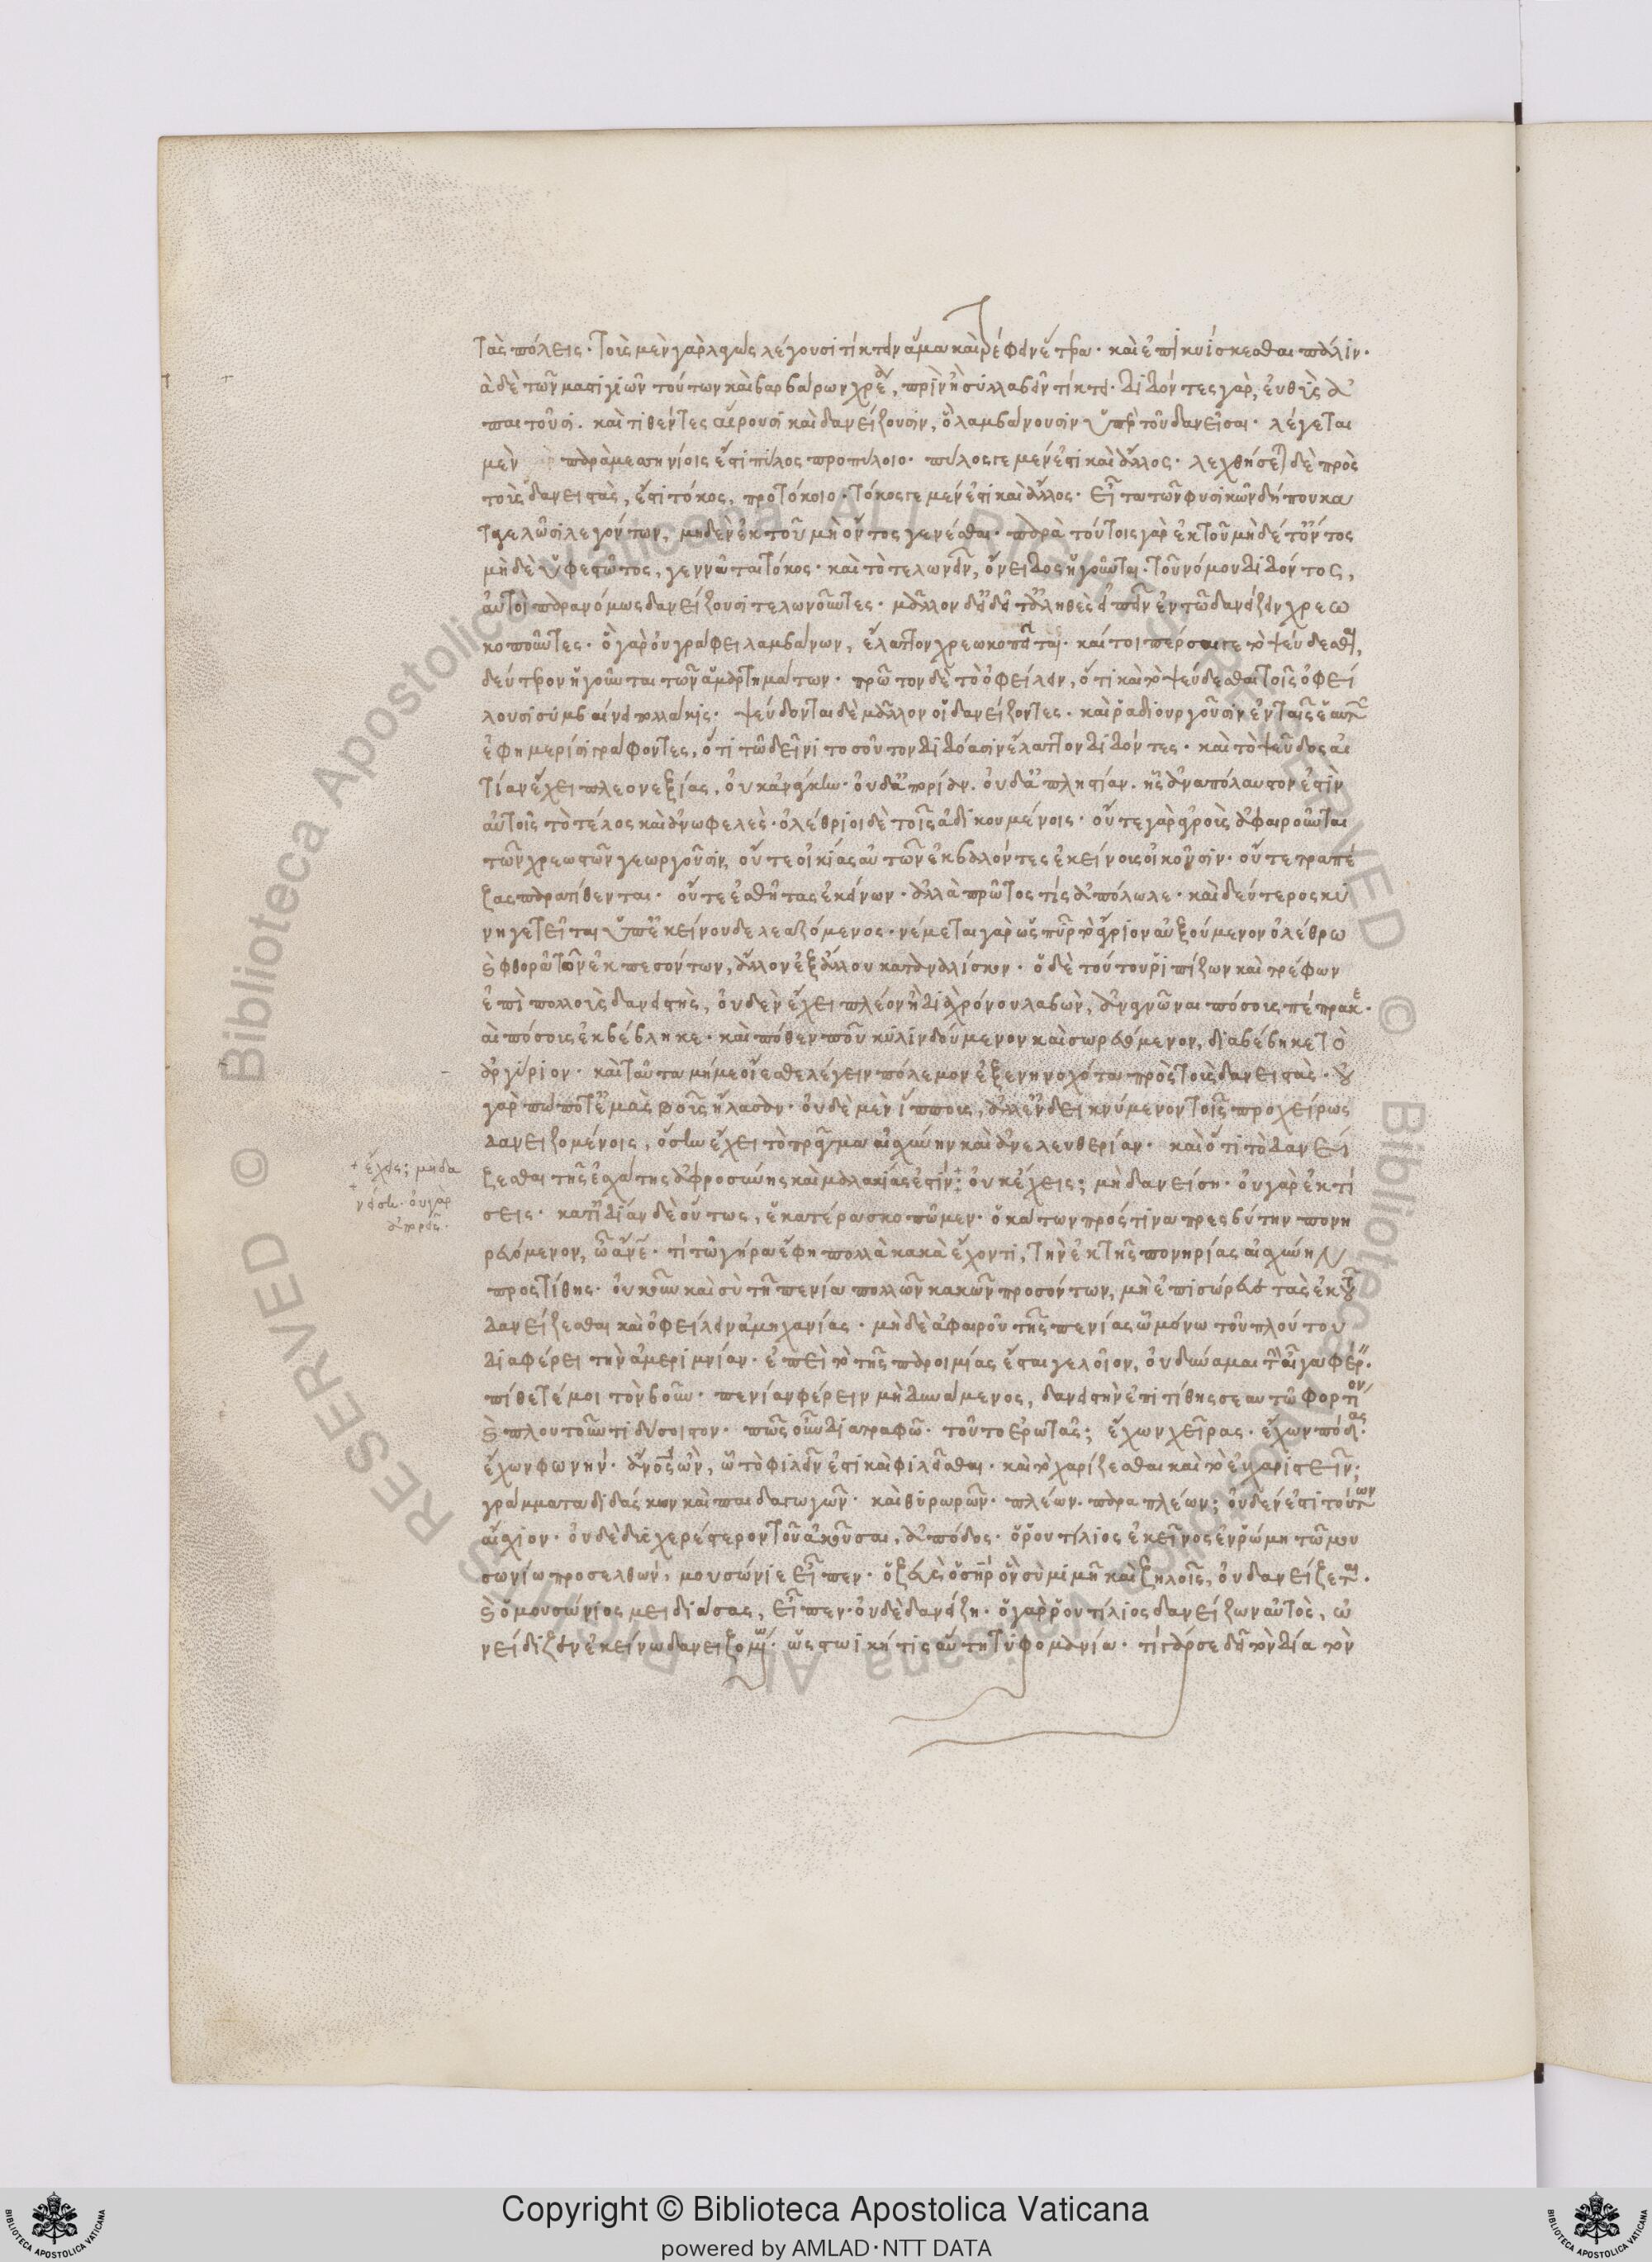 τὰς πόλεις· τοὺς μὲν γὰρ λαγὼς λέγουσι τίκτειν ἅμα καὶ τρέφειν ἕτερα· καὶ ἐπικυίσκεσθαι πάλιν·
ἃ δὲ τῶν μαστιγιῶν τούτων καὶ βαρβάρων χρέα, πρὶν ἢ συλλαβεῖν τίκτει· διδόντες γὰρ, εὐθὺς ἀ
παιτοῦσι· καὶ τιθέντες αἴρουσι καὶ δανείζουσιν, ὃ λαμβάνουσιν ὑπὲρ τοῦ δανεῖσαι· λέγεται
μὲν παρὰ μεσηνίοις ἔστι πύλος πρὸ πύλοιο· πύλος γε μέν ἐστι καὶ ἄλλος· λεχθήσεται δὲ πρὸς
τοὺς δανειστὰς, ἔστι τόκος, πρὸ τόκοιο· τόκος γε μέν ἐστι καὶ ἄλλος· εἶτα τῶν φυσικῶν δήπου κα
ταγελῶσι λεγόντων, μηδὲν ἐκ τοῦ μὴ ὄντος γενέσθαι· παρὰ τούτοις γὰρ ἐκ τοῦ μηδέτ' ὄντος
μηδὲ ὑφεστῶτος, γεννᾶται τόκος· καὶ τὸ τελωνεῖν, ὄνειδος ἡγοῦνται· τοῦ νόμου διδόντος,
αὐτοὶ παρανόμως δανείζουσι τελωνοῦντες· μᾶλλον δ' εἰ δεῖ τἀληθὲς εἰπεῖν ἐν τῷ δανείζειν χρεω
κοποῦντες· ὁ γὰρ οὗ γράφει λαμβάνων, ἔλαττον χρεωκοπεῖται· καίτοι πέρσαι γε τὸ ψεύδεσθαι,
δεύτερον ἡγοῦνται τῶν ἁμαρτημάτων· πρῶτον δὲ τὸ ὀφείλειν, ὅτι καὶ τὸ ψεύδεσθαι τοῖς ὀφεί
λουσι συμβαίνει πολλάκις· ψεύδονται δὲ μᾶλλον οἱ δανείζοντες· καὶ ῥαδιουργοῦσιν ἐν ταῖς ἑαυτῶν
ἐφημερίσι γράφοντες, ὅτι τῷ δεῖνι τοσοῦτον διδόασιν ἔλαττον διδόντες· καὶ τὸ ψεῦδος αἰ
τίαν ἔχει πλεονεξίας, οὐκ ἀνάγκην· οὐδ' ἀπορίαν· οὐδ' ἀπληστίαν· ἧς ἀναπόλαυστόν ἐστιν
αὐτοῖς τὸ τέλος καὶ ἀνωφελὲς· ὀλέθριοι δὲ τοῖς ἀδικουμένοις· οὔτε γὰρ ἀγροὺς ἀφαιροῦνται
τῶν χρεωστῶν γεωργοῦσιν, οὔτε οἰκίας αὐτῶν ἐκβαλόντες ἐκείνους οἰκοῦσιν· οὔτε τραπέ
ζας παρατίθενται· οὔτε ἐσθῆτας ἐκείνων· ἀλλὰ πρῶτος τίς ἀπόλωλε· καὶ δεύτερος κυ
νηγετεῖται ὑπ' ἐκείνου δελεαζόμενος· νέμεται γὰρ ὡς πῦρ τὸ ἄγριον αὐξούμενον ὀλέθρω
καὶ φθορᾷ τῶν ἐκπεσόντων, ἄλλον ἐξ ἄλλου καταναλίσκον· ὁ δὲ τοῦτου ῥιπίζων καὶ τρέφων
ἐπὶ πολλοὺς δανειστὴς, οὐδὲν ἔχει πλέον ἢ διὰ χρόνου λαβὼν, ἀναγνῶναι πόσους πέπρακε·
αι πόσους ἐκβέβληκε· καὶ πόθεν ποῦ κυλινδούμενον καὶ σωρευόμενον, διαβέβηκε τὸ
ἀργύριον· καὶ ταῦτα μή με οἴεσθε λέγειν πόλεμον ἐξενηνοχότα πρὸς τοὺς δανειστὰς· οὐ
γὰρ πώποτ' ἐμὰς βοῦς ἤλασαν· οὐδὲ μὲν ἵππους, ἀλλ' ἐνδεικνύμενον τοῖς προχείρως
δανειζομένοις, ὅσην ἔχει τὸ πρᾶγμα αἰσχύνην καὶ ἀνελευθερίαν· καὶ ὅτι τὸ δανεί
ζεσθαι τῆς ἐσχάτης ἀφροσύνης καὶ μαλακίας ἐστίν· οὐκ ἔχεις; μὴ δανείση· οὐ γὰρ ἐκτί
+ ἔχεις; μὴ δα
νείση· οὐ γὰρ
ἀπορεῖς·
σεις· κατ' ἰδίαν δὲ οὕτως, ἑκατέρα σκοπῶμεν· ὁ κάτων πρός τινα πρεσβύτην πονη
ρευόμενον, ὦ ἄνθρωπε· τί τῷ γήρᾳ ἔφη πολλὰ κακὰ ἔχοντι, τὴν ἐκ τῆς πονηρίας αἰσχύνην
προστίθης· οὐκοῦν καὶ σὺ τῇ πενίᾳ πολλῶν κακῶν προσόντων, μὴ ἐπισώρευε τὰς ἐκ τοῦ
δανείζεσθαι καὶ ὀφείλειν ἀμηχανίας· μηδὲ ἀφαιροῦ τῆς πενίας ᾧ μόνῳ τοῦ πλούτου
διαφέρει τὴν ἀμεριμνίαν· ἐπεὶ τὸ τῆς παροιμίας ἔσται γελοῖον, οὐ δύναμαι τὴν αἶγα φέρειν·
πίθετέ μοι τὸν βοῦν· πενίαν φέρειν μὴ δυνάμενος, δανειστὴν ἐπιτίθης σεαυτῷ φορτίον
καὶ πλουτοῦντι δύσοιστον· πῶς οὖν διατραφῶ· τοῦτο ἐρωτᾷς; ἔχων χεῖρας· ἔχων πόδας·
ἔχων φωνήν· ἄνθρωπος ὢν, ᾧ τὸ φιλεῖν ἐστι καὶ φιλεῖσθαι· καὶ τὸ χαρίζεσθαι καὶ τὸ εὐχαριστεῖν;
γράμματα διδάσκων καὶ παιδαγωγῶν· καὶ θυρωρῶν· πλέων· παραπλέων; οὐδέν ἐστι τούτων
αἴσχιον· οὐδὲ δυσχερέστερον τοῦ ἀκοῦσαι, ἀπόδος· ὁ ῥουτίλιος ἐκεῖνος ἐν ῥώμῃ τῷ μου
σωνίῳ προσελθών, μουσώνιε εἶπεν· ὁ ζεὺς ὁ σωτὴρ ὃν σὺ μιμῇ καὶ ζηλοῖς, οὐ δανείζεται·
καὶ ὁ μουσώνιος μειδιάσας, εἶπεν· οὐδὲ δανείζη· ὁ γὰρ ῥουτίλιος δανείζων αὐτὸς, ὠ
νείδιζεν ἐκείνῳ δανειζομένῳ· ὡς στωικὴ τις αὕτη τυφομανία· τί γάρ σε δεῖ τὸν δία τὸν
Copyright © Biblioteca Apostolica Vaticana
powered by AMLAD·NTT DATA